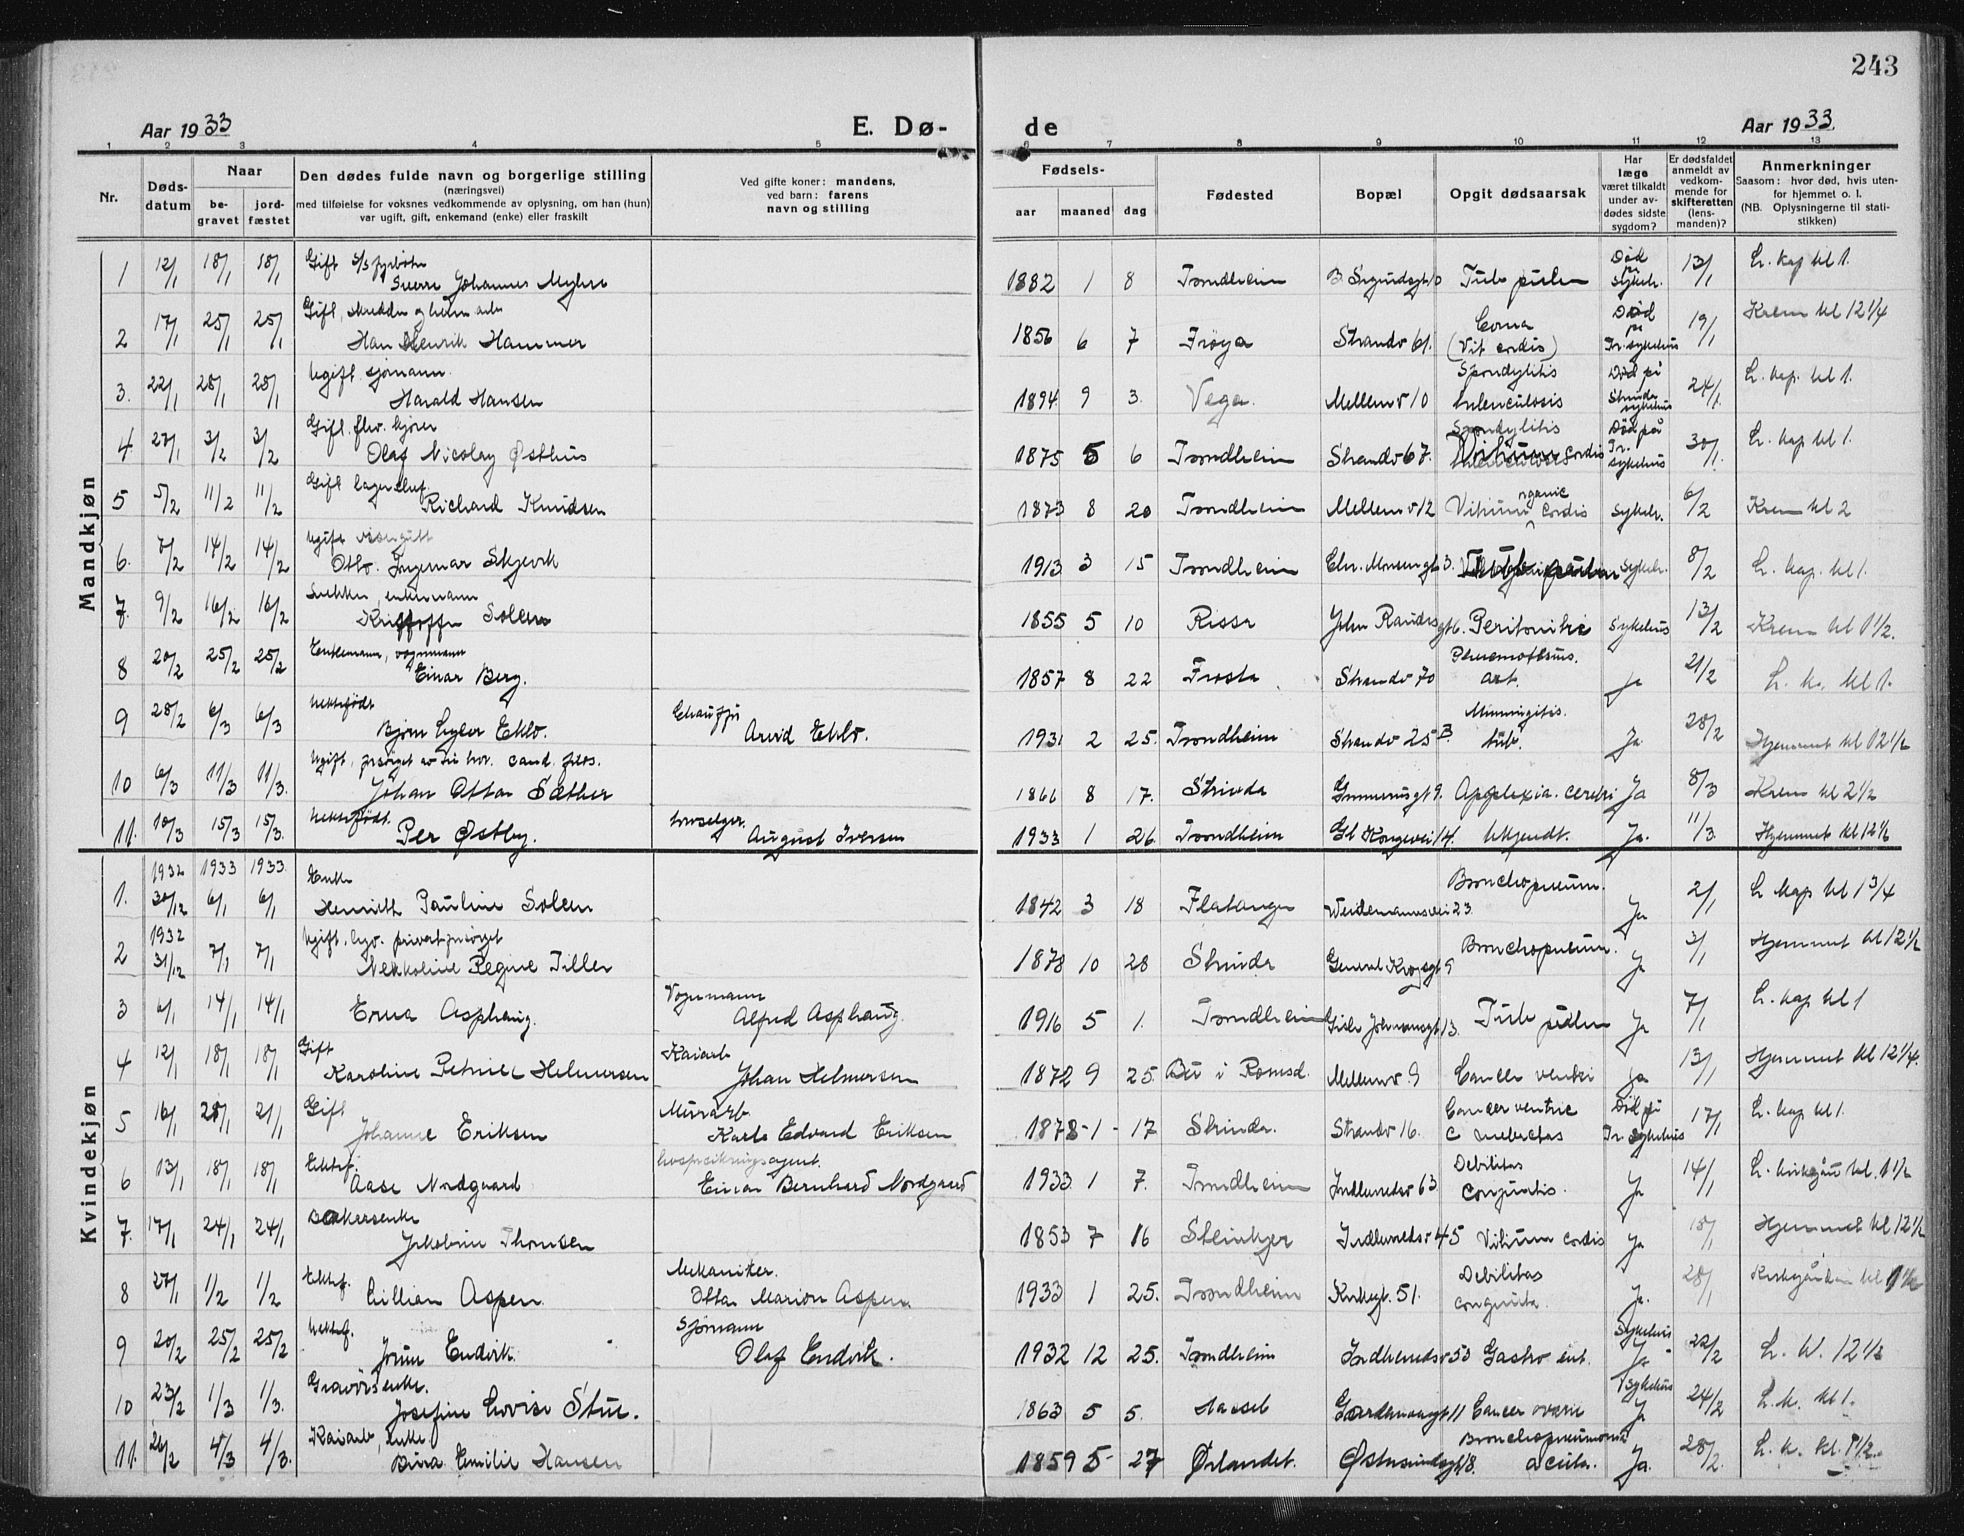 243
Aar 1933
E. Dø-
de
Aar 1933.
1 2 3 4 5 6 7 8 9 10 11 12 13
Nr.
Døds-
datum
Naar
be-
gravet
jord-
fæstet
Den dødes fulde navn og borgerlige stilling
(næringsvei)
med tilføielse for voksnes vedkommende av oplysning, om han (hun)
var ugift, gift, enkemand (enke) eller fraskilt
Ved gifte koner: mandens,
ved barn: farens
navn og stilling
Fødsels-
aar maaned dag
Fødested
Bopæl
Opgit dødsaarsak
Har
læge
været tilkaldt
under av-
dødes sidste
sygdom?
Er dødsfaldet
anmeldt av
vedkom-
mende for
skifteretten
(lens-
manden)?
Anmerkninger
Saasom: hvor død, hvis uten-
for hjemmet o. l.
(NB. Oplysningerne til stati-
stikken)
Mandkjøn
1 12/1 18/1 18/1 Gift s/s fyrbøter
Sverre Johannes Myhre 1882 1 8 Trondheim Tub pulm Død på sykeh. 13/1 L. kap kl 1.
2 17/1 25/1 25/1 Gift, skredder
Hans Henrik Hammer 1856 6 7 Frøya Strandv 61. Coma (Vit cordis) Død på Tr. sykehus 19/1 Krem kl 12 1/4
3. 22/1 28/1 28/1 Ugift sjømann.
Harald Hansen 1894 9 3. Vega. Mellemv 10 Spondylitis tuberculosis Død på Strinda sykehus 24/1. L. kap. kl 1.
4 27/1 3/2 3/2 Gift.
Olaf Nicolay Østhus 1875 5 6 Trondheim Strandv 67. Vitium cordis Død på Tr. sykehus 30/1. L. kap kl 1.
5 5/2 11/2 11/2 Gift lagersjef.
Richard Knudsen 1873 8 20 Trondheim Mellemv 12 Vitium organic cordis sykeh. 6/2 Krem kl 2
6. 7/2 14/2 14/2 Ugift visergutt
Otto. Ingemar Skjevik 1913 3 15 Trondheim Chr. Monsens gt 3. sykeh. 8/2 L. kap. kl 1.
7. 9/2 16/2 16/2 Snekker, enkemann
Kristoffer Solem 1855 5 10 Rissa Peritonitis sykehus 13/2 Krem kl 1 1/2.
8 20/2 25/2 25/2 Enkemann, vognmann
Einar Berg. 1857 8 22 Frosta Strandv 70 ja 21/2 L. k. kl 1.
9 28/2 6/3 6/3 Ektefødt
Bjørn Eklo. Chauffør
Arvid Eklo. 1931 2 25. Trondheim Strandv 25 B. Meningitis. tub. Ja 28/2 Hjemmet kl 12 1/2
10 6/3 11/3 11/3. Ugift, forsørget av sin bror. cand. filos.
Johan Ottar Sæther 1866 8 17. Strinda Gunnerusgt 9. Apoplexia. cerebri Ja 8/3 Krem kl 2 1/2
11. 10/3 15/3 15/3. Ektefødt.
Per Østby.
August Iversen 1933 1 26 Trondheim Gl Kongevei 14. Ukjendt. Ja. 11/3 Hjemmet kl 12 1/2
Kvindekjøn
1. 1932 30/12 1933 6/1 1933. 6/1 Enke
Henriette Pauline Solem 1842 3 18 Flatanger Weidemannsvei 23. Bronchopneum. Ja 2/1 L kap kl 1 3/4
2 1932 31/12 7/1 7/1 Ugift. privat forsørget
Nikoline Regine Tiller 1878 10 28 Strinda General Krogsgt 9 Bronchopneum. Ja 3/1 Hjemmet kl 12 1/2
3 6/1 14/1 14/1 Erna Asphaug. Vognmann
Alfred Asphaug. 1916 5 1. Trondheim Gisle Johnsonsgt 13. Tub pulm Ja 7/1 L. kap kl 1
4 12/1 18/1 18/1 Gift
Karoline Petrine Helmersen Kaiarb
Johan Helmersen 1872 9 25. Bu i Romsd. Mellemv. 9 Cancer ventri ja 13/1 Hjemmet kl 12 1/4.
5 16/1 21/1 Gift
Johanne Eriksen Murarb
Karl Edvard Eriksen 1878 - 1 - 17 Strinda. Strandv 16. Cancer ventric c metastas Død på Tr. sykehus 17/1 L. kap kl 1.
6 13/1 18/1 18/1 Ektef.
Aase Nordgaard agent.
Einar Bernhard Nordgaard 1933. 1 7. Trondheim Indherredsv 63. Debilitas congenitis. Ja 14/1 L. kirkegård kl. 1 1/2
7. 17/1 24/1 24/1 Bakerenke
Jakobine Thomsen 1853 7 16 Steinkjer Indherredsv 45 Vitium cordis ja 18/1 Hjemmet kl 12 1/2
8 27/1 1/2 1/2 Ektef.
Lillian Aspen. Mekaniker.
Ottar Marion Aspen 1933 1 25. Trondheim Kirkegt. 51. Debilitas congenita. Ja. 28/1 Kirkegården kl 1 1/2
9 20/2 25/2 25/2 Ektef.
Jorun Endvik. Sjømann
Olaf Endvik. 1932 12 25. Trondheim Indherredsv 53 Gastro ent. Sykehus Ja 22/2 L. k. 12 1/2
10 23/2 1/3 1/3. Gravørenke.
Josefine Lovise Stue. 1863 5 5. Hassel Cancer ovarie sykehus Ja 24/2 L. k. kl 1.
11. 26/2 4/3 4/3. Kaiarb, enke
Emilie Hansen 1859 5 27 Ørlandet. Østersundsgt 18. Bronchopneumonia acuta. Ja. 28/2. L. k. kl. 1 1/2.